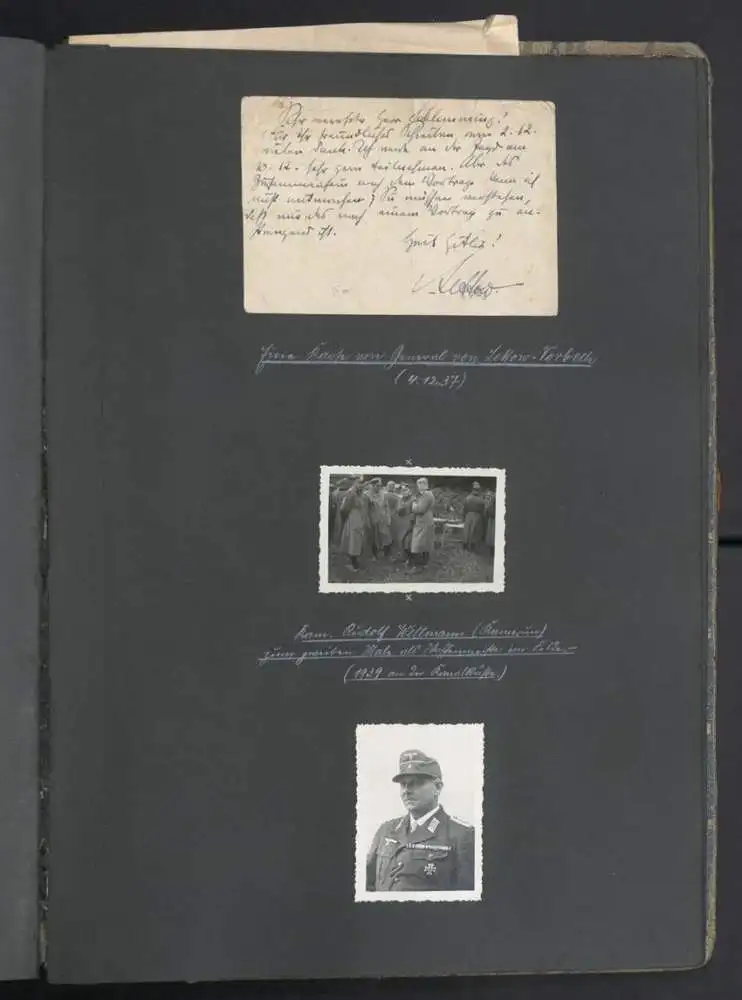 Sehr verehrter Herr Schlemming!
Für Ihr freundliches Schreiben vom 2.12.
vielen Dank. Ich werde an der Jagd am
12. sehr gern teilnehmen. Aber das
Zusammensein nach dem Vortrage kann ich
nicht mitmachen; Sie müssen verstehen,
daß mir das nach einem Vortrag zu an-
strengend ist.
Heil Hitler!
v. Lettow.
Eine Karte von General von Lettow-Vorbeck
(4.12.37)
x
x
Kam. Rudolf Wellmann (Kamerun)
zum zweiten Male als im Felde.-
(1939 an der Kanalküste.)